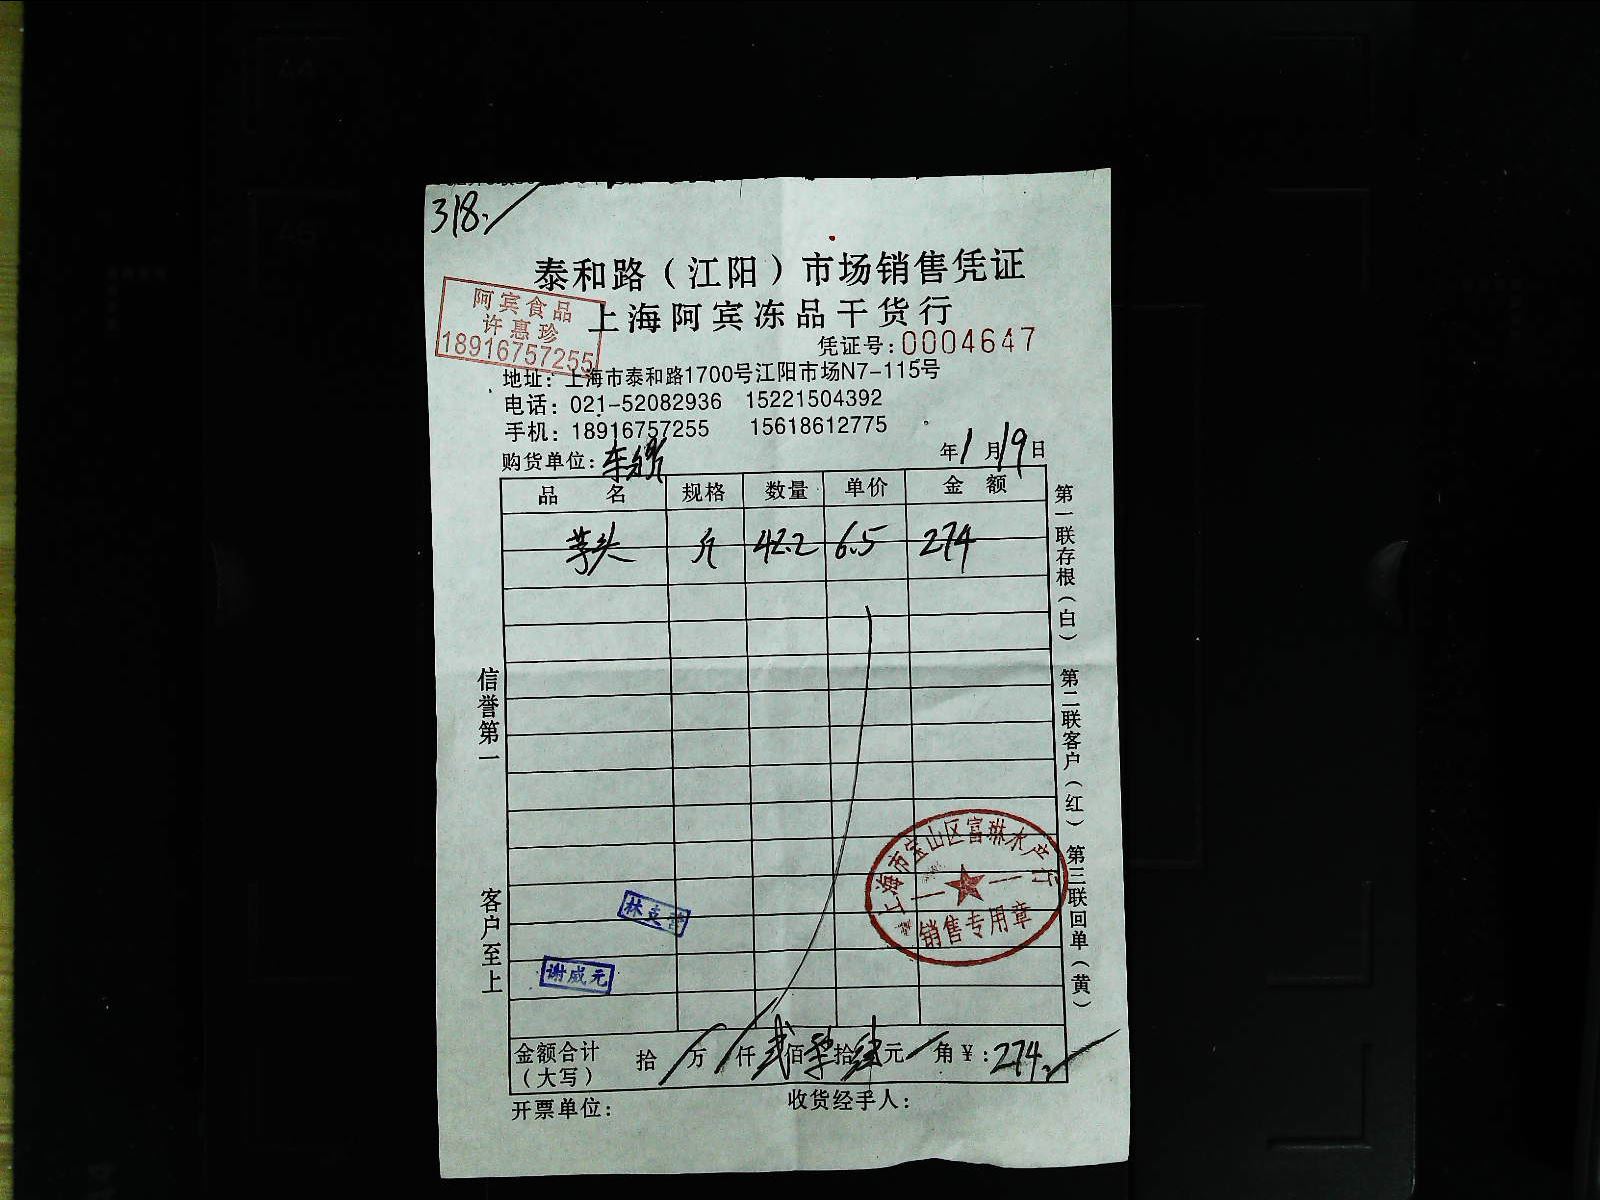 318.
泰和路（江阳）市场销售凭证
上海阿宾冻品干货行
阿宾食品
许惠珍
18916757255
凭证号:0004647
地址：上海市泰和路1700号江阳市场N7-115号
电话：021-52082936 15221504392
手机：18916757255 15618612775
购货单位：
年1月19日
品名 规格 数量 单价 金额
芋头 斤 42.2 6.5 274
第一联存根（白） 第二联客户（红） 第三联回单（黄）
信誉第一
客户至上
上海市宝山区富琳水产行
销售专用章
谢威元
金额合计 拾 万 仟 贰佰柒拾肆元 角￥:274.
（大写）
开票单位： 收货经手人：